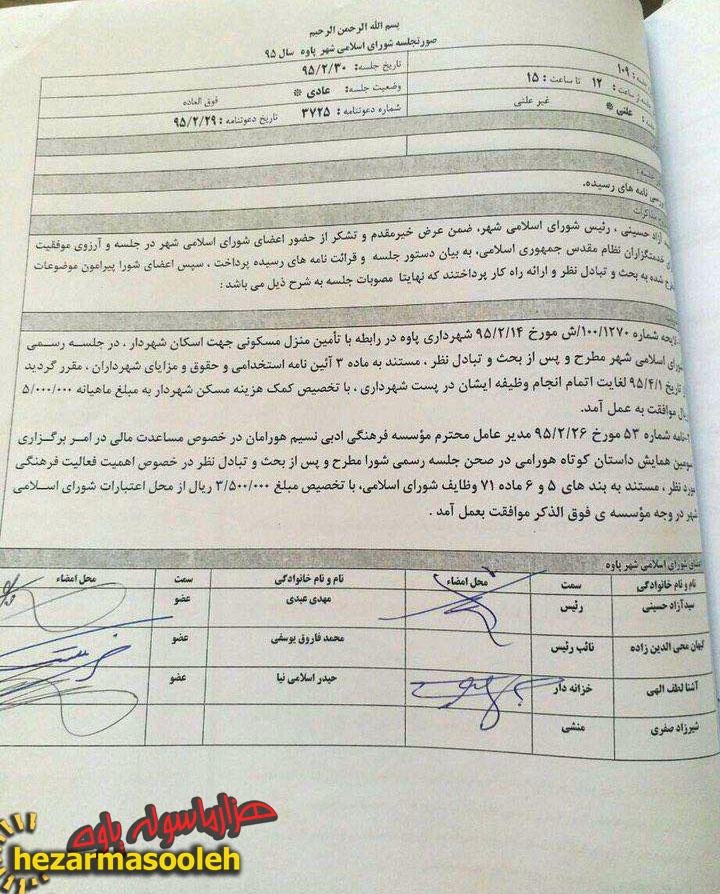 بسم الله الرحمن الرحیم
صورتجلسه شورای اسلامی شهر پاوه سال ۹۵
جلسه : ۱۰۹
تاریخ جلسه: ۹۵/۲/۳۰
جلسه از ساعت : ۱۲ تا ساعت : ۱۵
وضعیت جلسه: عادی * فوق العاده
علنی * غیر علنی
شماره دعوتنامه : ۳۷۲۵ تاریخ دعوتنامه : ۹۵/۲/۲۹
جلسه :
بررسی نامه های رسیده.
مذاکرات
آزاد حسینی ، رئیس شورای اسلامی شهر، ضمن عرض خیرمقدم و تشکر از حضور اعضای شورای اسلامی شهر در جلسه و آرزوی موفقیت
خدمتگزاران نظام مقدس جمهوری اسلامی، به بیان دستور جلسه و قرائت نامه های رسیده پرداخت ، سپس اعضای شورا پیرامون موضوعات
شده به بحث و تبادل نظر و ارائه راه کار پرداختند که نهایتا مصوبات جلسه به شرح ذیل می باشد :
لایحه شماره ۱۰۰/۱۲۷۰/ش مورخ ۹۵/۲/۱۴ شهرداری پاوه در رابطه با تأمین منزل مسکونی جهت اسکان شهردار ، در جلسه رسمی
شورای اسلامی شهر مطرح و پس از بحث و تبادل نظر ، مستند به ماده ۳ آئین نامه استخدامی و حقوق و مزایای شهرداران ، مقرر گردید
از تاریخ ۹۵/۴/۱ لغایت اتمام انجام وظیفه ایشان در پست شهرداری ، با تخصیص کمک هزینه مسکن شهردار به مبلغ ماهیانه ۵/۰۰۰/۰۰۰
ریال موافقت به عمل آمد.
۲-نامه شماره ۵۳ مورخ ۹۵/۲/۲۶ مدیر عامل محترم مؤسسه فرهنگی ادبی نسیم هورامان در خصوص مساعدت مالی در امر برگزاری
سومین همایش داستان کوتاه هورامی در صحن جلسه رسمی شورا مطرح و پس از بحث و تبادل نظر در خصوص اهمیت فعالیت فرهنگی
مورد نظر ، مستند به بند های ۵ و ۶ ماده ۷۱ وظایف شورای اسلامی، با تخصیص مبلغ ۳/۵۰۰/۰۰۰ ریال از محل اعتبارات شورای اسلامی
شهر در وجه مؤسسه ی فوق الذکر موافقت بعمل آمد .
اعضای شورای اسلامی شهر پاوه
نام و نام خانوادگی سمت محل امضاء نام و نام خانوادگی سمت محل امضاء
سیدآزاد حسینی رئیس مهدی عبدی عضو
کیهان محی الدین زاده نائب رئیس محمد فاروق یوسفی عضو
آشنا لطف الهی خزانه دار حیدر اسلامی نیا عضو
شیرزاد صفری منشی
هزارماسوله پاوه
hezarmasooleh